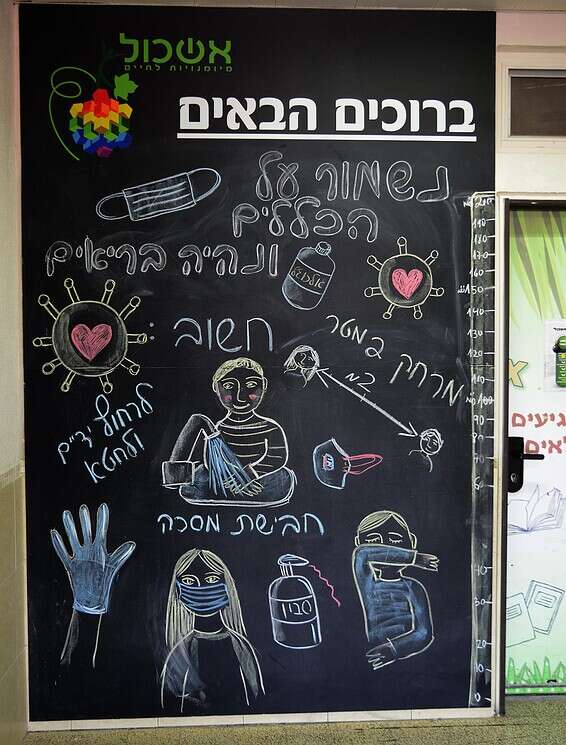 אשכול
מיומנויות לחיים
ברוכים הבאים
נשמור על
הכללים
ונהיה בריאים
אלכוהול
חשוב:
מרחק 2 מטר
2 מ'
לרחוץ ידיים
ולחטא
חבישת מסכה
סבון
190
180
170
160
150
140
130
120
100
90
80
70
60
50
40
30
20
10
0